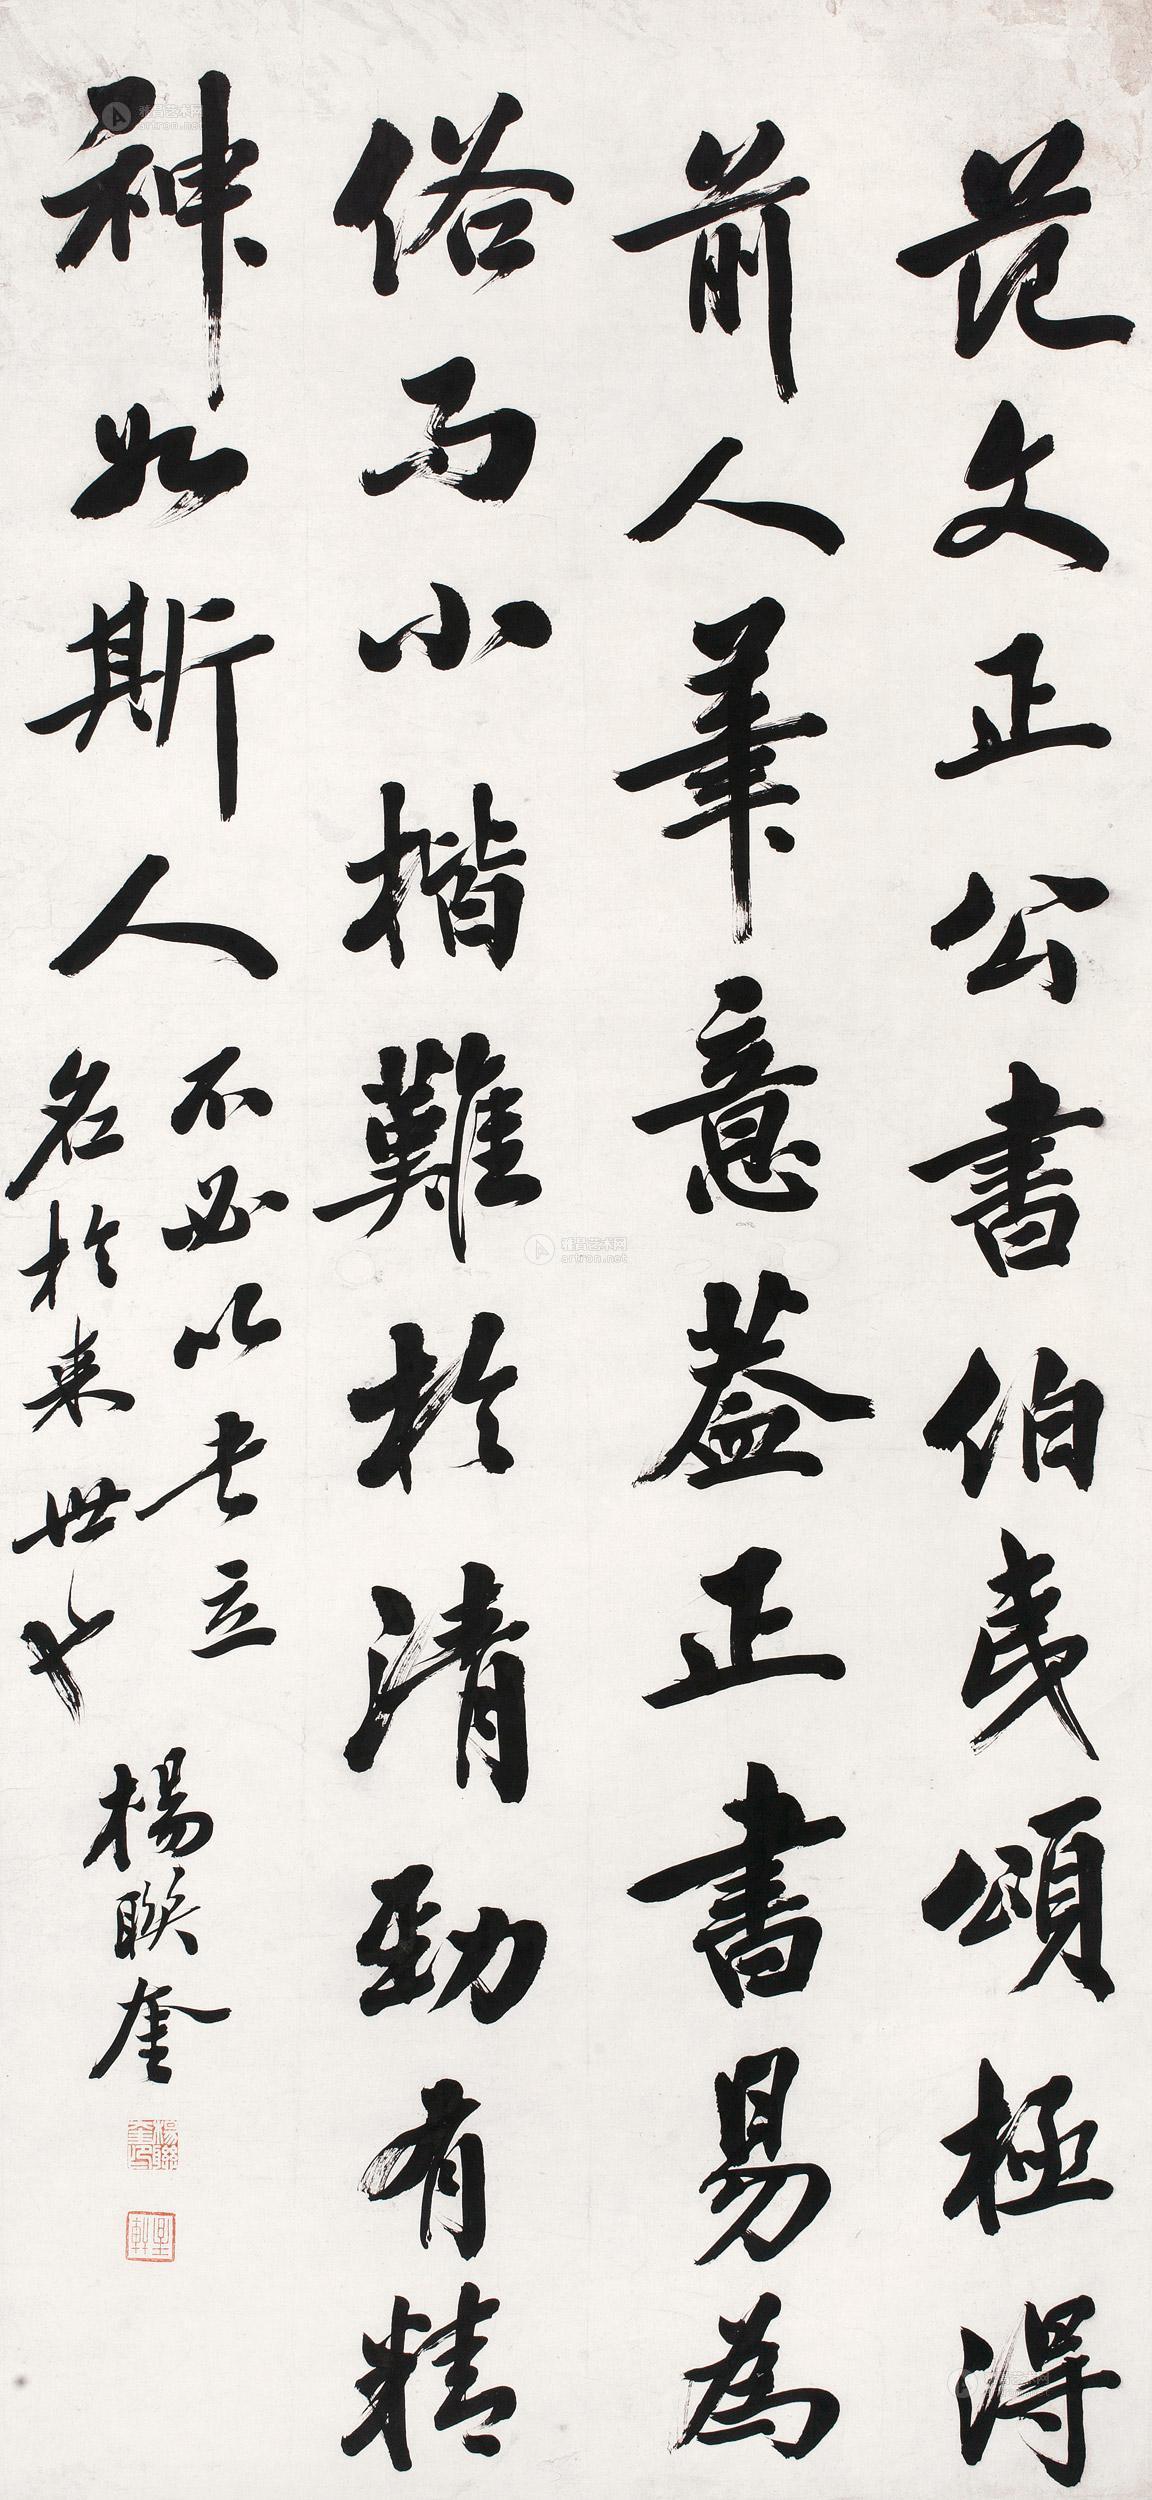 范文正公書伯夷頌極得
前人筆意蓋正書易為
俗而小楷難於清勁有精
神如斯人
不必以書立
名於來世也
楊聯奎
楊聯奎印
雅昌艺术网
artron.net